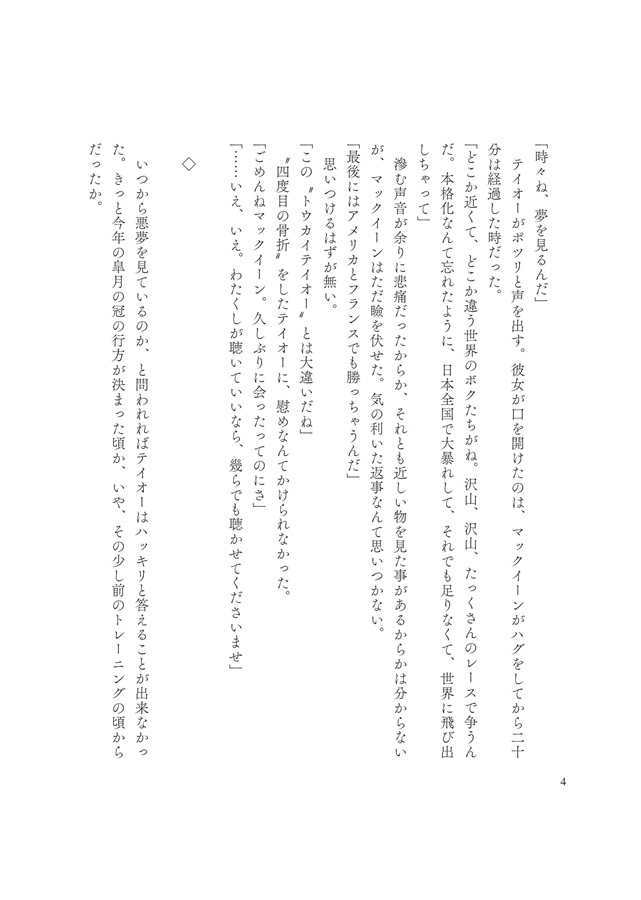 「時々ね、夢を見るんだ」
　テイオーがポツリと声を出す。彼女が口を開けたのは、マックイーンがハグをしてから二十
分は経過した時だった。
「どこか近くて、どこか違う世界のボクたちがね。沢山、沢山、たっくさんのレースで争うん
だ。本格化なんて忘れたように、日本全国で大暴れして、それでも足りなくて、世界に飛び出
しちゃって」
　滲む声音が余りに悲痛だったからか、それとも近しい物を見た事があるからかは分からない
が、マックイーンはただ瞼を伏せた。気の利いた返事なんて思いつかない。
「最後にはアメリカとフランスでも勝っちゃうんだ」
　思いつけるはずが無い。
「この〝トウカイテイオー〟とは大違いだね」
　〝四度目の骨折〟をしたテイオーに、慰めなんてかけられなかった。
「ごめんねマックイーン。久しぶりに会ったってのにさ」
「……いえ、いえ。わたくしが聴いていいなら、幾らでも聴かせてくださいませ」
◇
　いつから悪夢を見ているのか、と問われればテイオーはハッキリと答えることが出来なかっ
た。きっと今年の皐月の冠の行方が決まった頃か、いや、その少し前のトレーニングの頃から
だったか。
4